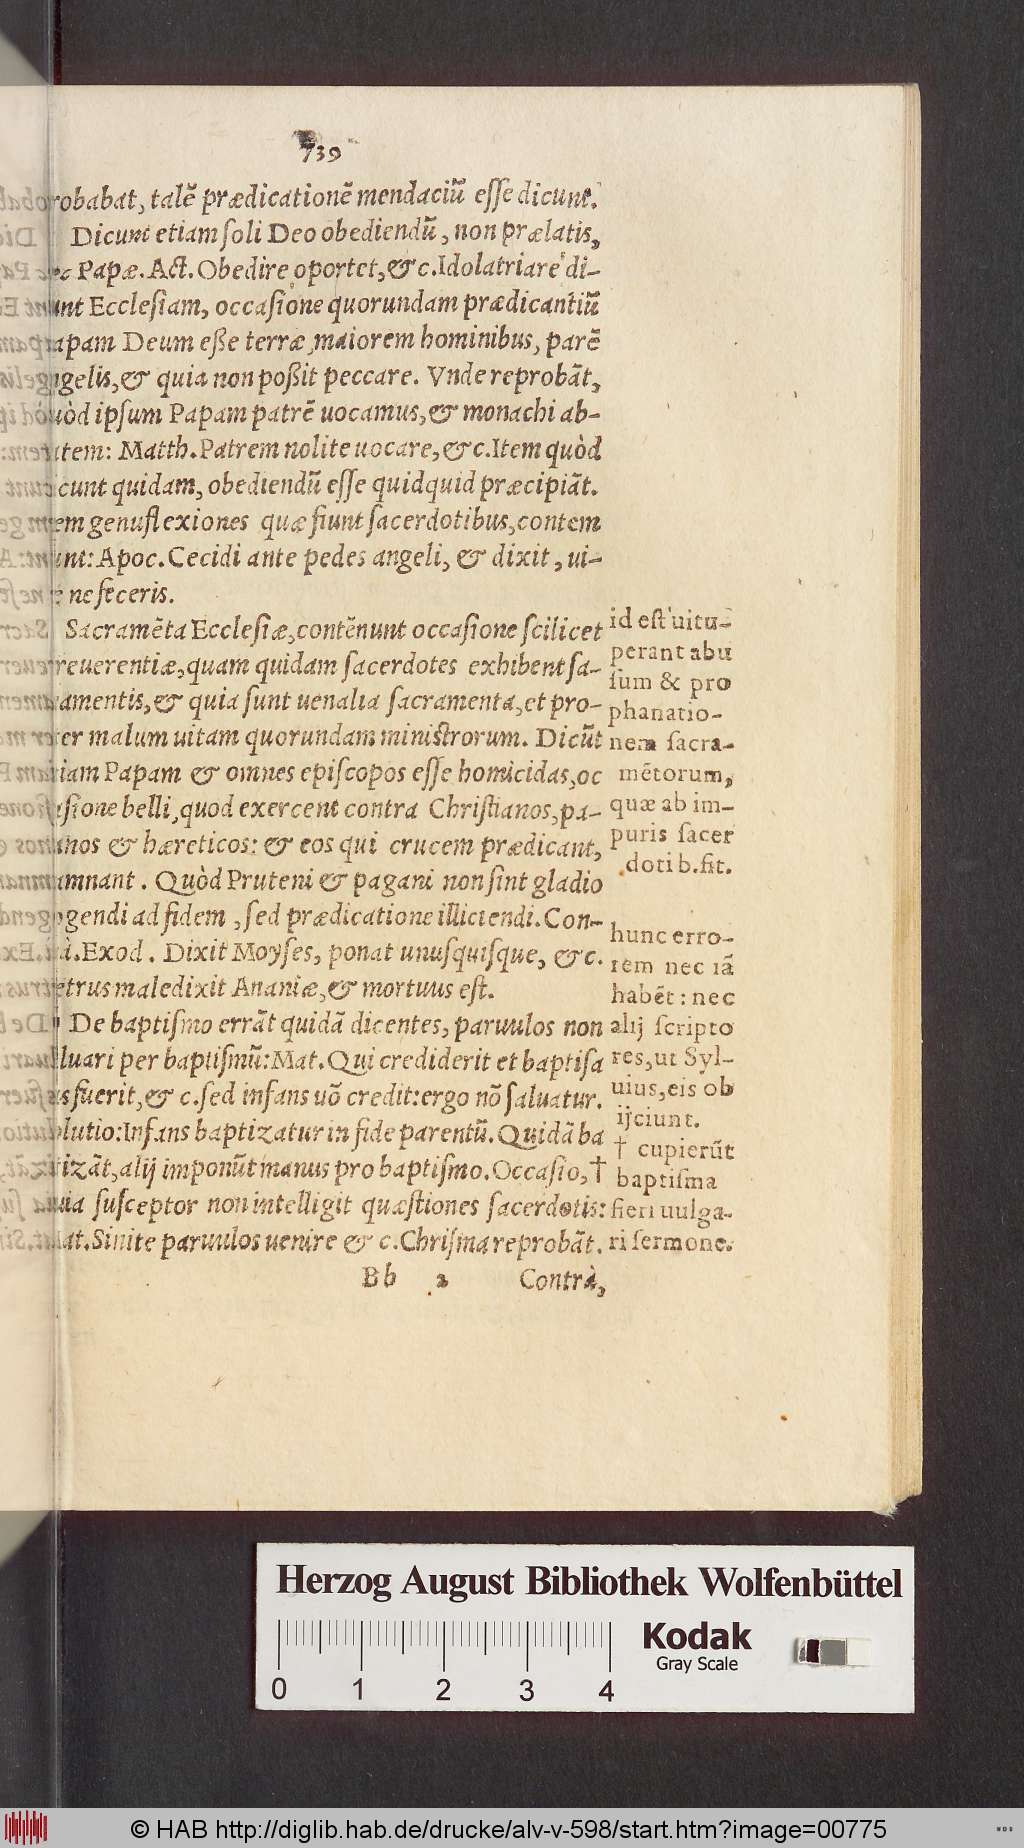 739
probabat, talē prædicationē mendaciū esse dicunt.
Dicunt etiam soli Deo obediendū, non prælatis,
Papæ. Act. Obedire oportet, &c. Idolatriare di-
cunt Ecclesiam, occasione quorundam prædicantiū
papam Deum esse terræ, maiorem hominibus, parē
angelis, & quia non possit peccare. Vnde reprobāt,
quòd ipsum Papam patrē uocamus, & monachi ab-
batem: Matth. Patrem nolite uocare, &c. Item quòd
dicunt quidam, obediendū esse quidquid præcipiāt.
Item genuflexiones quæ fiunt sacerdotibus, contem
nunt: Apoc. Cecidi ante pedes angeli, & dixit, ui-
de ne feceris.
Sacramēta Ecclesiæ, contēnunt occasione scilicet
irreuerentiæ, quam quidam sacerdotes exhibent sa-
cramentis, & quia sunt uenalia sacramenta, et pro-
pter malum uitam quorundam ministrorum. Dicūt
etiam Papam & omnes episcopos esse homicidas, oc
casione belli, quod exercent contra Christianos, pa-
ganos & hæreticos: & eos qui crucem prædicant,
damnant. Quòd Pruteni & pagani non sint gladio
cogendi ad fidem, sed prædicatione illiciendi. Con-
trà. Exod. Dixit Moyses, ponat unusquisque, &c.
Petrus maledixit Ananiæ, & mortuus est.
De baptismo errāt quidā dicentes, paruulos non
saluari per baptismū: Mat. Qui crediderit et baptisa
tus fuerit, & c. sed infans nō credit: ergo nō saluatur.
Solutio: Infans baptizatur in fide parentū. Quidā ba
ptizāt, alij imponūt manus pro baptismo. Occasio, †
quia susceptor non intelligit quæstiones sacerdotis:
Mat. Sinite paruulos uenire & c. Chrisma reprobāt.
Bb 2 Contrà,
id est uitu-
perant abu
sum & pro
phanatio-
nem sacra-
mētorum,
quæ ab im-
puris sacer
dotib. fit.
hunc erro-
rem nec iā
habēt: nec
alij scripto
res, ut Syl-
uius, eis ob
ijciunt.
† cupierūt
baptisma
fieri uulga-
ri sermone.
Herzog August Bibliothek Wolfenbüttel
Kodak
Gray Scale
0 1 2 3 4
© HAB http://diglib.hab.de/drucke/alv-v-598/start.htm?image=00775